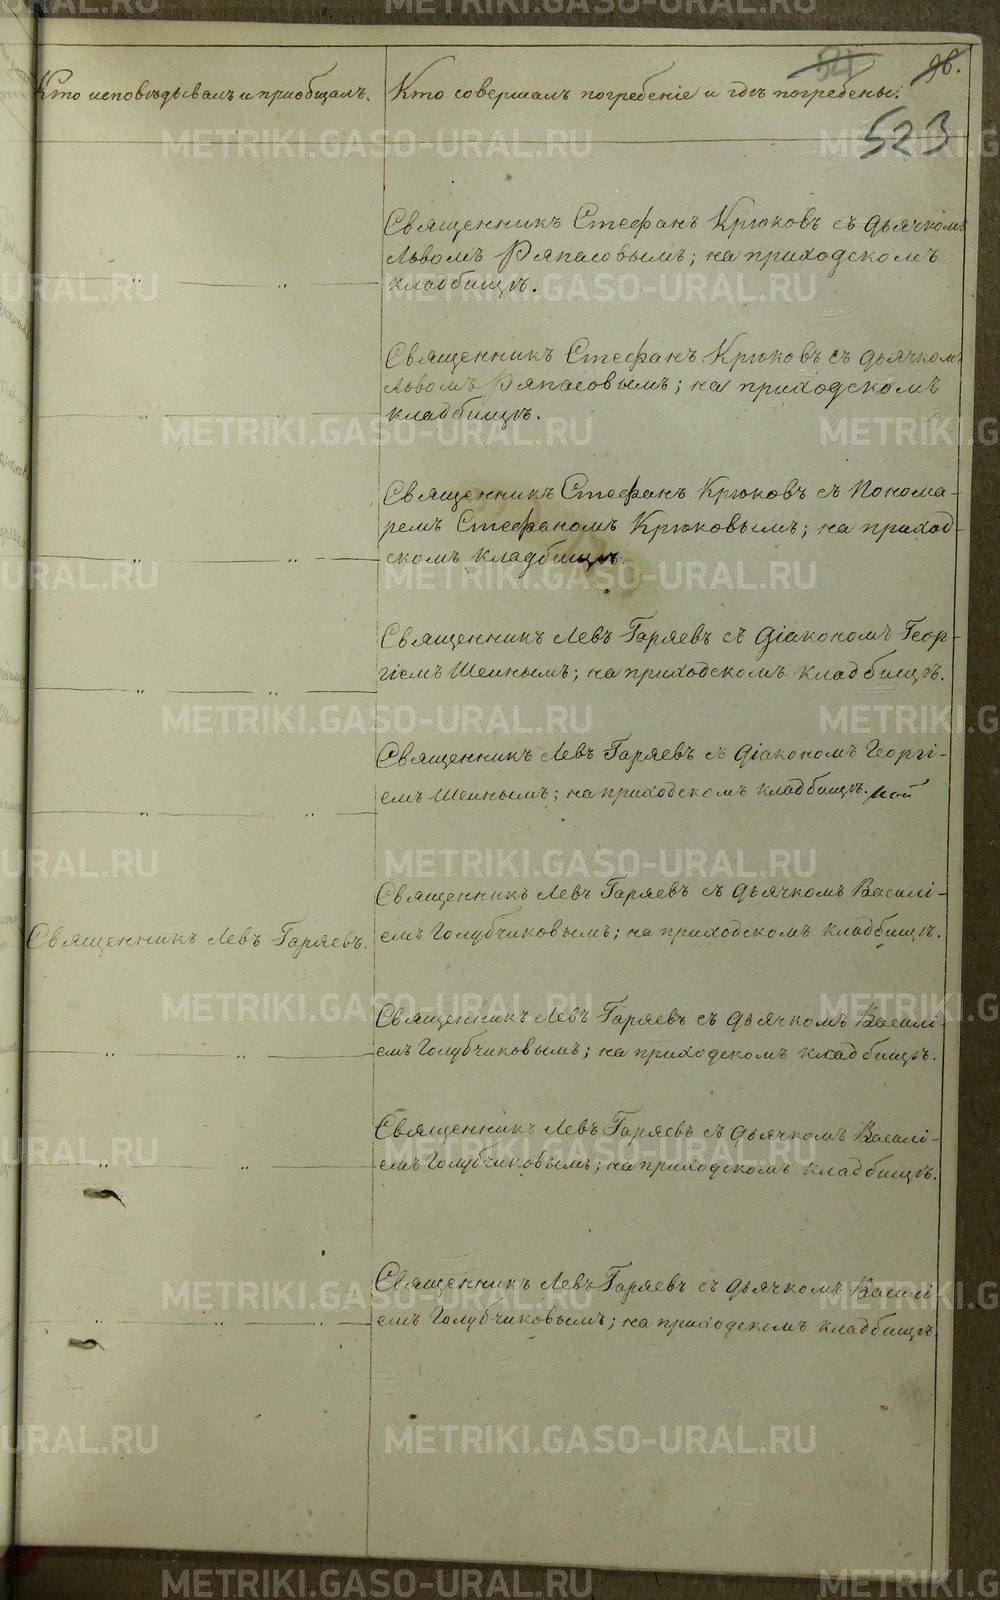 98.
523
Кто исповѣдывалъ и приобщалъ.
Кто совершалъ погребеніе и гдѣ погребены.
Священникъ Стефанъ Крюковъ съ дьячкомъ
Львомъ Ряпасовымъ; на приходскомъ
кладбищѣ.
" "
Священникъ Стефанъ Крюковъ съ дьячкомъ
Львомъ Ряпасовымъ; на приходскомъ
кладбищѣ.
" "
Священникъ Стефанъ Крюковъ съ Понома-
ремъ Стефаномъ Крюковымъ; на приход-
скомъ кладбищѣ.
" "
Священникъ Левъ Гаряевъ съ діакономъ Геор-
гіемъ Шеинымъ; на приходскомъ кладбищѣ.
" "
Священникъ Левъ Гаряевъ съ діакономъ Георгі-
емъ Шеинымъ; на приходскомъ кладбищѣ.
" "
Священникъ Левъ Гаряевъ.
Священникъ Левъ Гаряевъ съ дьячкомъ Василі-
емъ Голубчиковымъ; на приходскомъ кладбищѣ.
Священникъ Левъ Гаряевъ съ дьячкомъ Василі-
емъ Голубчиковымъ; на приходскомъ кладбищѣ.
" "
Священникъ Левъ Гаряевъ съ дьячкомъ Василі-
емъ Голубчиковымъ; на приходскомъ кладбищѣ.
" "
Священникъ Левъ Гаряевъ съ дьячкомъ Василі-
емъ Голубчиковымъ; на приходскомъ кладбищѣ.
" " "
METRIKI.GASO-URAL.RU